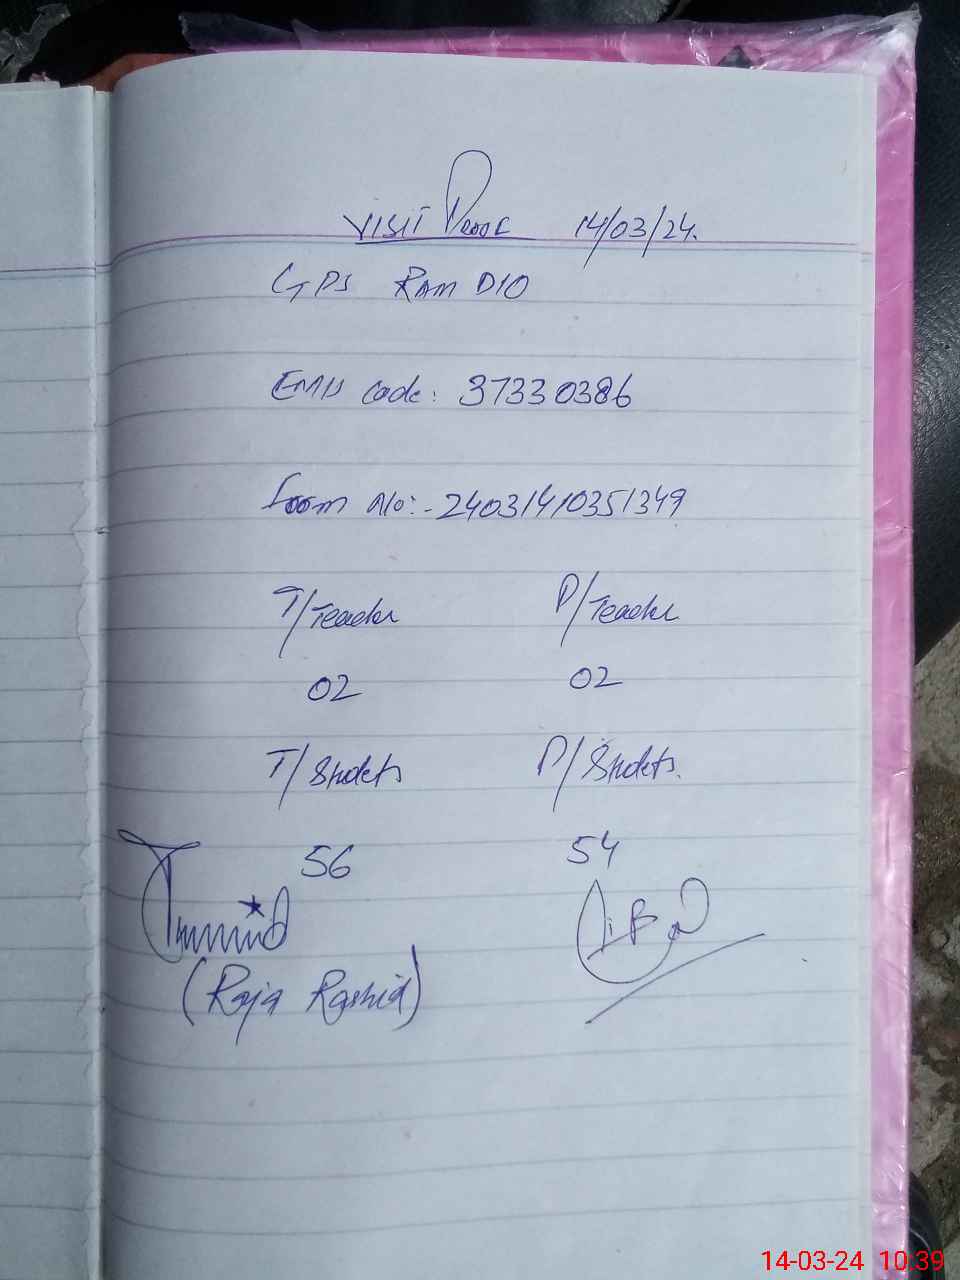 VISIT Proof 14/03/24.
GPS RAM DIO
EMIS code: 37330386
Form No:- 24031410351349
T/Teacher P/Teacher
02 02
T/Studets P/Studets.
56 54
(Raja Rashid)
14-03-24 10:39